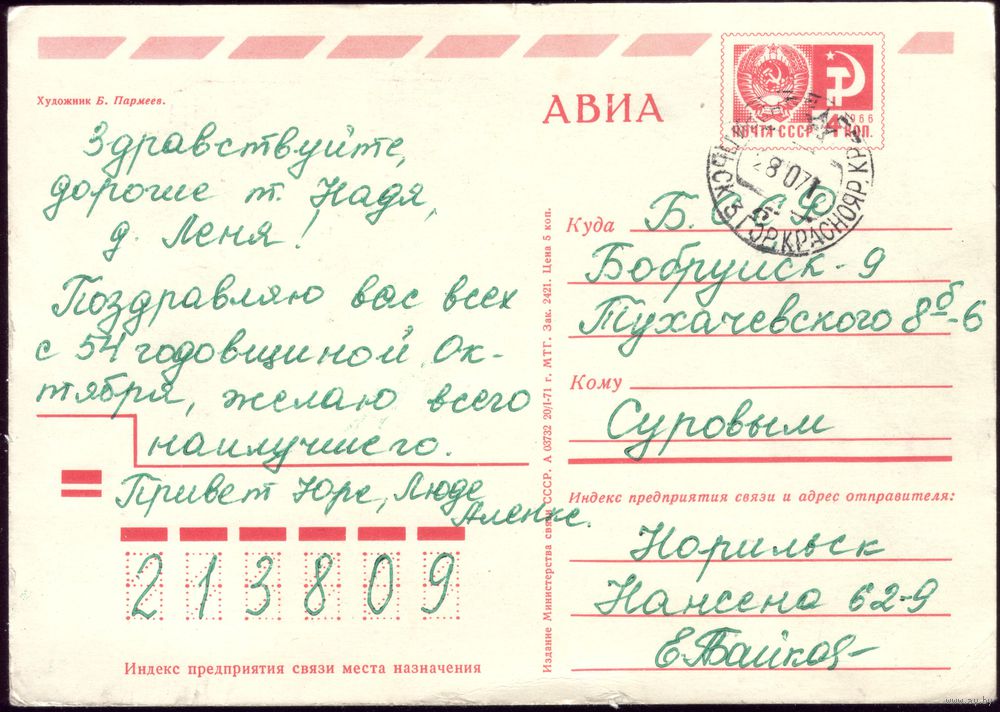 Художник Б. Пармеев.
АВИА
ПОЧТА СССР
1966
4 КОП.
28 10 71
КРАСНОЯРСК
Здравствуйте,
дорогие т. Надя,
д. Леня!
Поздравляю вас всех
с 54 годовщиной Ок-
тября, желаю всего
наилучшего.
Привет Юре, Люде
Аленке.
213809
Индекс предприятия связи места назначения
Издание Министерства связи СССР. А 03732 20/I-71 г. МТГ. Зак. 2421. Цена 5 коп.
Куда Б. ССР
Бобруйск-9
Тухачевского 8б-6
Кому
Суровым
Индекс предприятия связи и адрес отправителя:
Норильск
Нансена 62-9
Е. Байков
www.ay.by